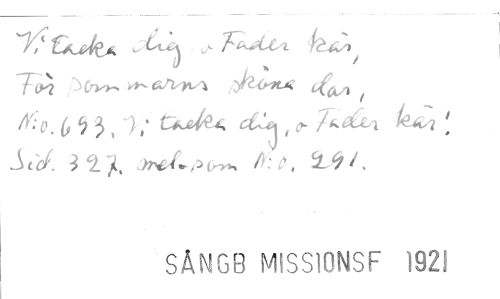 Vi tacka dig, o Fader kär,
För sommarns sköna dar,
N:o. 693. Vi tacka dig, o Fader kär!
Sid. 327. mel. som N:o. 291.
SÅNGB MISSIONSF 1921